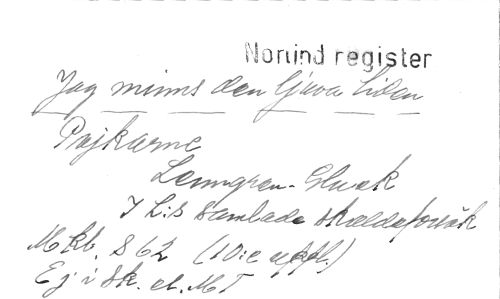 Norlind register
Jag minns den ljuva tiden
Pojkarne
Lenngren-Gluck
I L:s Samlade skaldeförsök
Mkb. S 62 (10:e uppl.)
Ej i Sk. el. MT